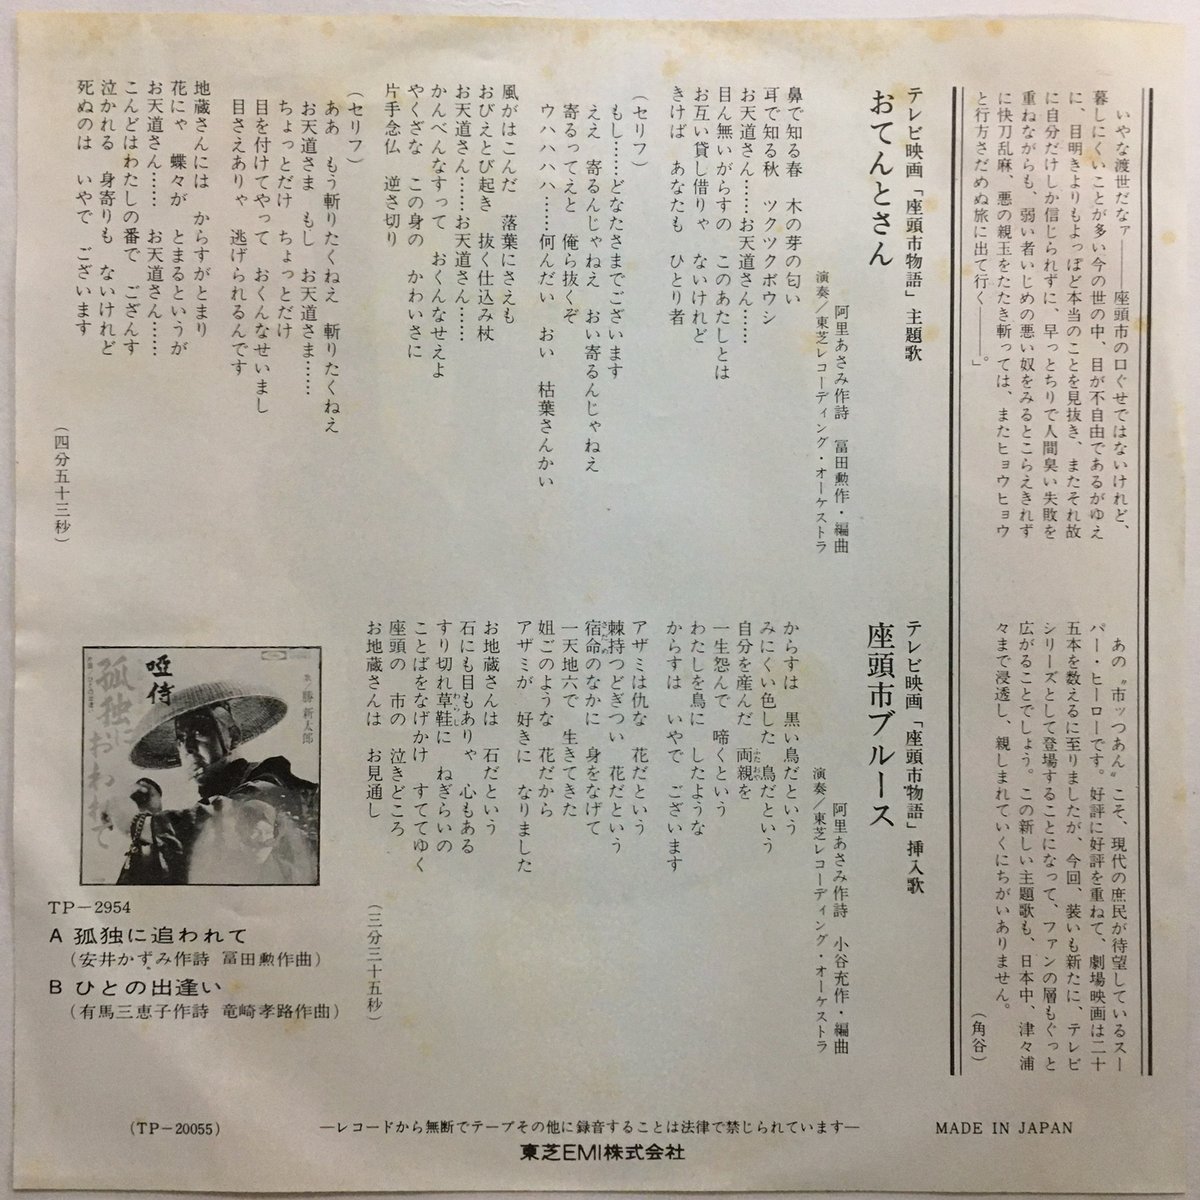 いやな渡世だなァ――座頭市の口ぐせではないけれど、
暮しにくいことが多い今の世の中、目が不自由であるがゆえ
に、目明きよりもよっぽど本当のことを見抜き、またそれ故
に自分だけしか信じられずに、早っとちりで人間臭い失敗を
重ねながらも、弱い者いじめの悪い奴をみるとこらえきれず
に快刀乱麻、悪の親玉をたたき斬っては、またヒョウヒョウ
と行方さだめぬ旅に出て行く――。」
あの〝市ッつあん〟こそ、現代の庶民が待望しているスー
パー・ヒーローです。好評に好評を重ねて、劇場映画は二十
五本を数えるに至りましたが、今回、装いも新たに、テレビ
シリーズとして登場することになって、ファンの層もぐっと
広がることでしょう。この新しい主題歌も、日本中、津々浦
々まで浸透し、親しまれていくにちがいありません。
(角谷)
テレビ映画「座頭市物語」主題歌
おてんとさん
阿里あさみ作詩 冨田勲作・編曲
演奏/東芝レコーディング・オーケストラ
鼻で知る春 木の芽の匂い
耳で知る秋 ツクツクボウシ
お天道さん……お天道さん……
目ん無いがらすの このあたしとは
お互い貸し借りゃ ないけれど
きけば あなたも ひとり者
(セリフ)
もし……どなたさまでございます
ええ 寄るんじゃねえ おい寄るんじゃねえ
寄るってえと 俺ら抜くぞ
ウハハハハ……何んだい おい 枯葉さんかい
風がはこんだ 落葉にさえも
おびえとび起き 抜く仕込み杖
お天道さん……お天道さん……
かんべんなすって おくんなせえよ
やくざな この身の かわいさに
片手念仏 逆さ切り
(セリフ)
ああ もう斬りたくねえ 斬りたくねえ
お天道さま もし お天道さま……
ちょっとだけ ちょっとだけ
目を付けてやって おくんなせいまし
目さえありゃ 逃げられるんです
地蔵さんには からすがとまり
花にゃ 蝶々が とまるというが
お天道さん…… お天道さん……
こんどはわたしの番で ござんす
泣かれる 身寄りも ないけれど
死ぬのは いやで ございます
(四分五十三秒)
テレビ映画「座頭市物語」挿入歌
座頭市ブルース
阿里あさみ作詩 小谷充作・編曲
演奏/東芝レコーディング・オーケストラ
からすは 黒い鳥だという
みにくい色した 鳥だという
自分を産んだ 両親を
ふたおや
一生怨んで 啼くという
わたしを鳥に したような
からすは いやで ございます
アザミは仇な 花だという
棘持つどぎつい 花だという
宿命のなかに 身をなげて
さだめ
一天地六で 生きてきた
姐ごのような 花だから
アザミが 好きに なりました
お地蔵さんは 石だという
石にも目もありゃ 心もある
すり切れ草鞋に ねぎらいの
わらじ
ことばをなげかけ すててゆく
座頭の 市の 泣きどころ
お地蔵さんは お見通し
(三分三十五秒)
唖侍
孤独におわれて
歌・勝新太郎
TP-2954
A 孤独に追われて
(安井かずみ作詩 冨田勲作曲)
B ひとの出逢い
(有馬三恵子作詩 竜崎孝路作曲)
(TP-20055)
―レコードから無断でテープその他に録音することは法律で禁じられています―
MADE IN JAPAN
東芝EMI株式会社